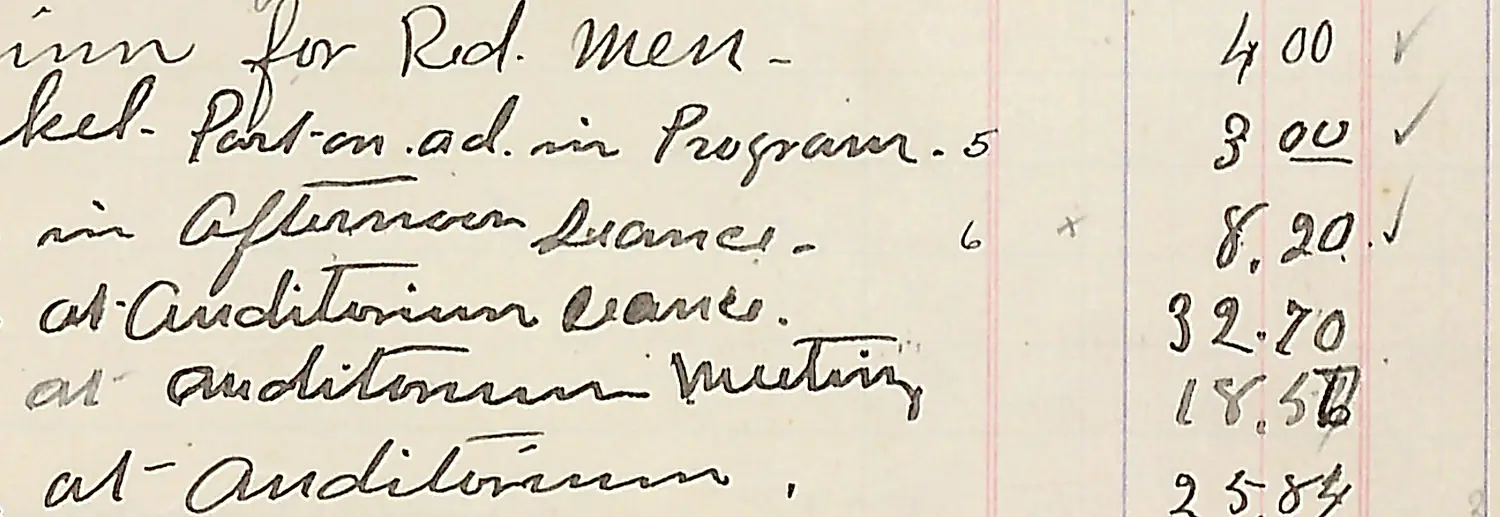 inn for Red. Men - 4 00 ✓
kel- Part-on.ad. in Program. 5 3 00 ✓
in Afternoon Seance. - 6 x 8.20. ✓
at Auditorium Seance. 32.70
at auditorium Meeting 18.5
at Auditorium. 25.84